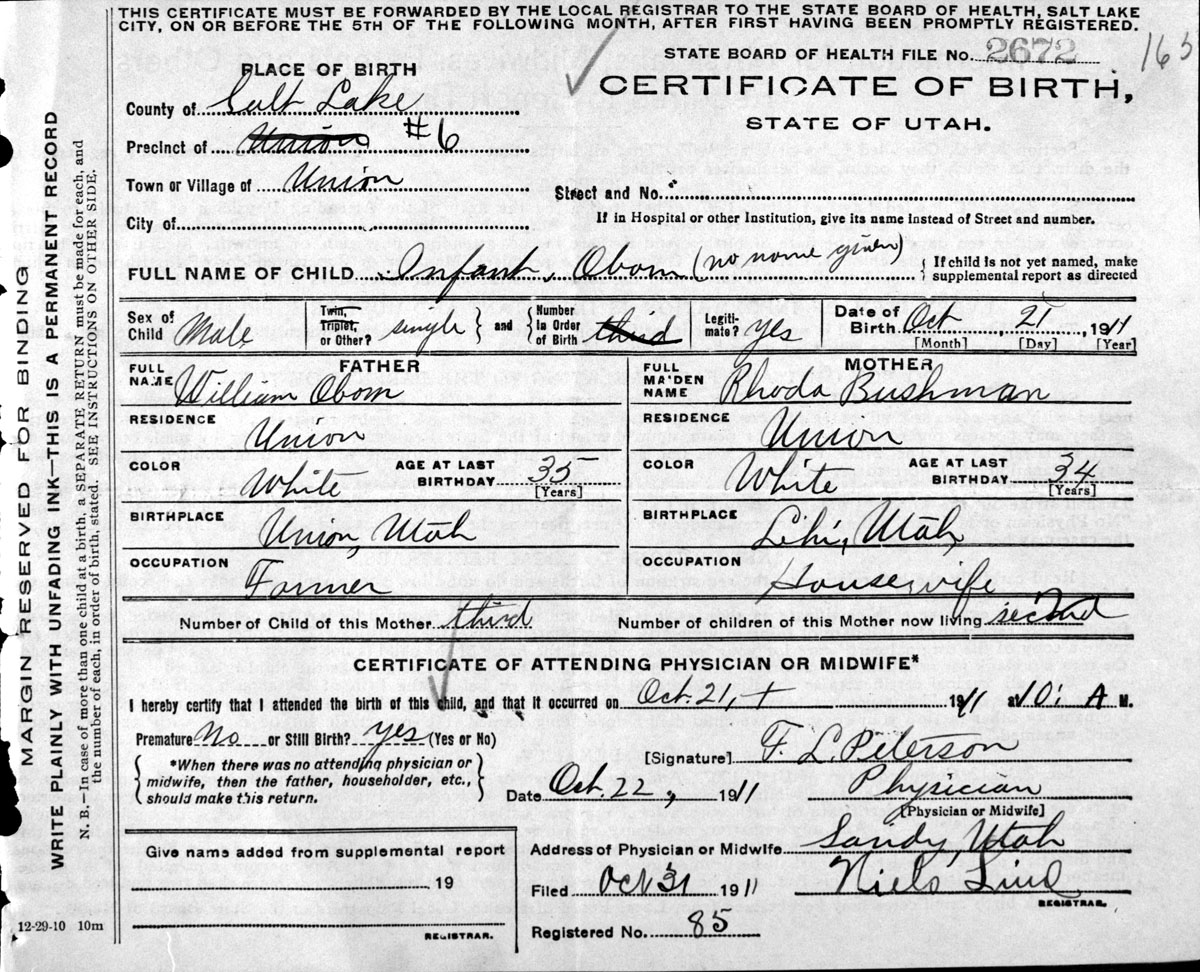 THIS CERTIFICATE MUST BE FORWARDED BY THE LOCAL REGISTRAR TO THE STATE BOARD OF HEALTH, SALT LAKE
CITY, ON OR BEFORE THE 5TH OF THE FOLLOWING MONTH, AFTER FIRST HAVING BEEN PROMPTLY REGISTERED.
STATE BOARD OF HEALTH FILE No. 2672
163
CERTIFICATE OF BIRTH,
STATE OF UTAH.
PLACE OF BIRTH
County of Salt Lake
Precinct of Union #6
Town or Village of Union
Street and No.
City of
If in Hospital or other Institution, give its name instead of Street and number.
FULL NAME OF CHILD Infant, Obom (no name given) { If child is not yet named, make
supplemental report as directed
Sex of Child Male
Twin, Triplet, or Other? single } and { Number In Order of Birth third
Legiti-mate? yes
Date of Birth Oct 21, 1911
[Month] [Day] [Year]
FATHER
FULL NAME William Obom
RESIDENCE Union
COLOR White AGE AT LAST BIRTHDAY 35 [Years]
BIRTHPLACE Union, Utah
OCCUPATION Farmer
MOTHER
FULL MAIDEN NAME Rhoda Bushman
RESIDENCE Union
COLOR White AGE AT LAST BIRTHDAY 34 [Years]
BIRTHPLACE Lehi, Utah,
OCCUPATION Housewife
Number of Child of this Mother third Number of children of this Mother now living second
CERTIFICATE OF ATTENDING PHYSICIAN OR MIDWIFE*
I hereby certify that I attended the birth of this child, and that it occurred on Oct. 21, 1911 10: A M.
Premature No or Still Birth? yes (Yes or No)
{ *When there was no attending physician or
midwife, then the father, householder, etc.,
should make this return. }
[Signature] F. L. Peterson
Date Oct. 22, 1911 Physician
[Physician or Midwife]
Give name added from supplemental report
19
REGISTRAR.
Address of Physician or Midwife Sandy, Utah
Filed Oct 31 1911 Niels Lind
REGISTRAR.
Registered No. 85
12-29-10 10m
MARGIN RESERVED FOR BINDING
WRITE PLAINLY WITH UNFADING INK—THIS IS A PERMANENT RECORD
N. B.—In case of more than one child at a birth, a SEPARATE RETURN must be made for each, and
the number of each, in order of birth, stated. SEE INSTRUCTIONS ON OTHER SIDE.